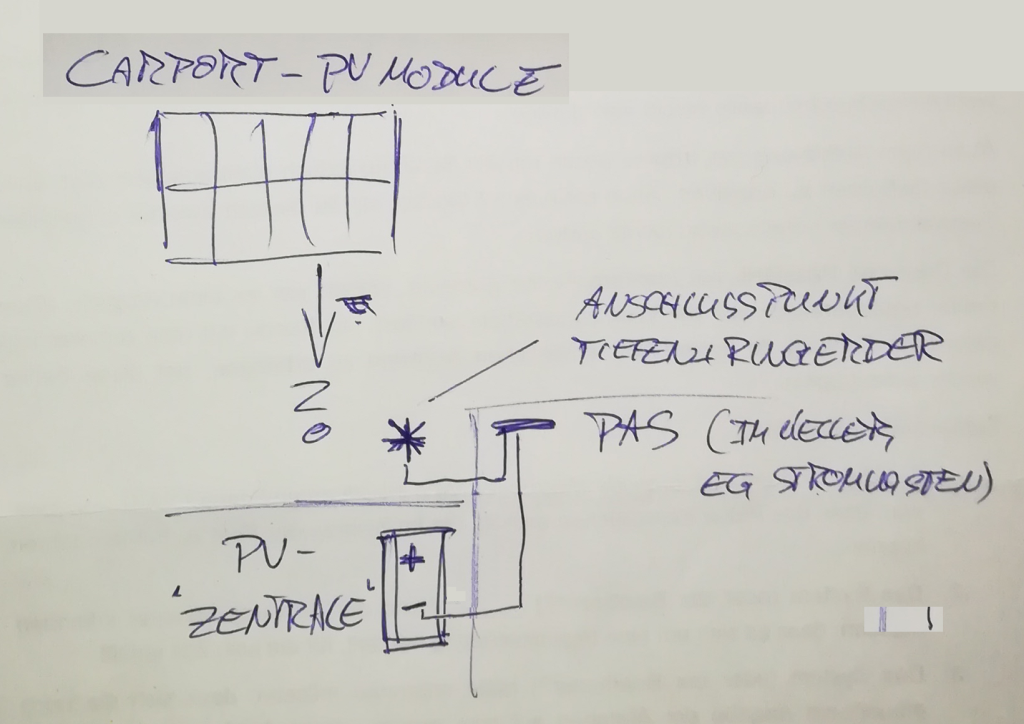 CARPORT - PV MODULE
ANSCHLUSSPUNKT
TIEFEN & RINGERDER
PAS (IM KELLER,
EG STROMKASTEN)
+
PV-
"ZENTRALE"
-